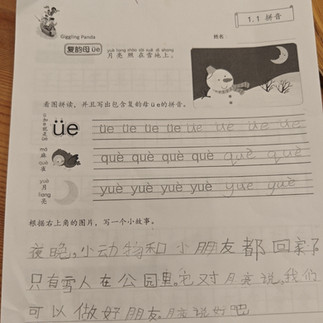 Giggling Panda
1.1 拼音
复韵母 üe
yuè liang zhào zài xuě dì shang
月亮照在雪地上。
看图拼读，并且写出包含复韵母üe的拼音。
üe üe üe üe üe üe üe üe
què què què què què què
yuè yuè yuè yuè yuè yuè
月
liang
亮
根据右上角的图片，写一个小故事。
夜晚，小动物和小朋友都回家了
只有雪人在公园里。它对月亮说，我们
可以做好朋友 月亮说好吧